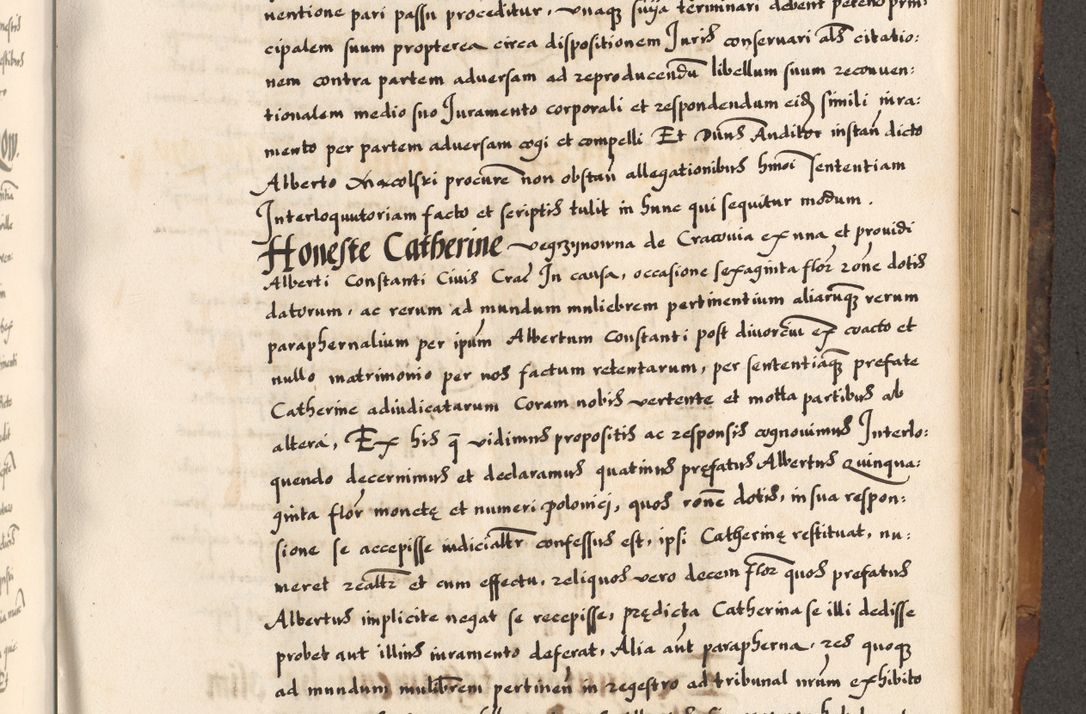 uentione pari passu proceditur, vnaqz suya terminari debent petendo prin:
cipalem suum propterea circa dispositionem Juris conseruari als citatio:
nem contra partem aduersam ad reproducendũ libellum suum reconuen:
tionalem medio suo Juramento corporali et respondendum eid simili iura:
mento per partem aduersam cogi et compelli Et Dũns Auditor instan dicto
Alberto Macolski procure non obstan allegationibus hmoi Sententiam
Interloquutoriam facto et scriptis tulit in hunc qui sequitur modum.
Honeste Catherine vegrzynowna de Cracouia ex una et prouidi
Alberti Constanti Ciuis Crac In causa, occasione sexaginta flor rone dotis
datorum, ac rerum ad mundum muliebrem pertinentium aliarumqz rerum
paraphernalium per ipum Albertum Constanti post diuorcũ ex coacto et
nullo matrimonio per nos factum retentarum, per sententiaqz prefate
Catherine adiudicatarum Coram nobis vertente et motta partibus ab
altera, Ex his q vidimus propositis ac responsis cognouimus Interlo:
quendo decernimus et declaramus quatinus pręfatus Albertus Quinqua:
ginta flor monetę et numeri polonici, quos rone dotis, in sua respon:
sione se accepisse iudicialtr confessus est, ipsi Catherinę restituat, nu:
meret realtr et cum effectu, reliquos vero decem flor quos prefatus
Albertus implicite negat se recepisse, prędicta Catherina se illi dedisse
probet aut illius iuramento deferat, Alia aut parapherna, res quoqz
ad mundum mulibrem pertinen in regestro ad tribunal nrum exhibito